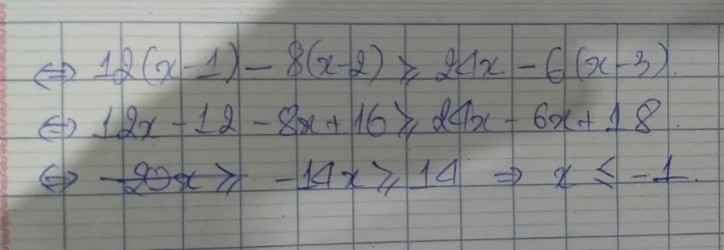 ⇔ 12(x-1) - 8(x-2) ⩾ 24x - 6(x-3).
⇔ 12x - 12 - 8x + 16 ⩾ 24x - 6x + 18.
⇔ ~~-20x ⩾~~ -14x ⩾ 14 ⇒ x ≤ -1.